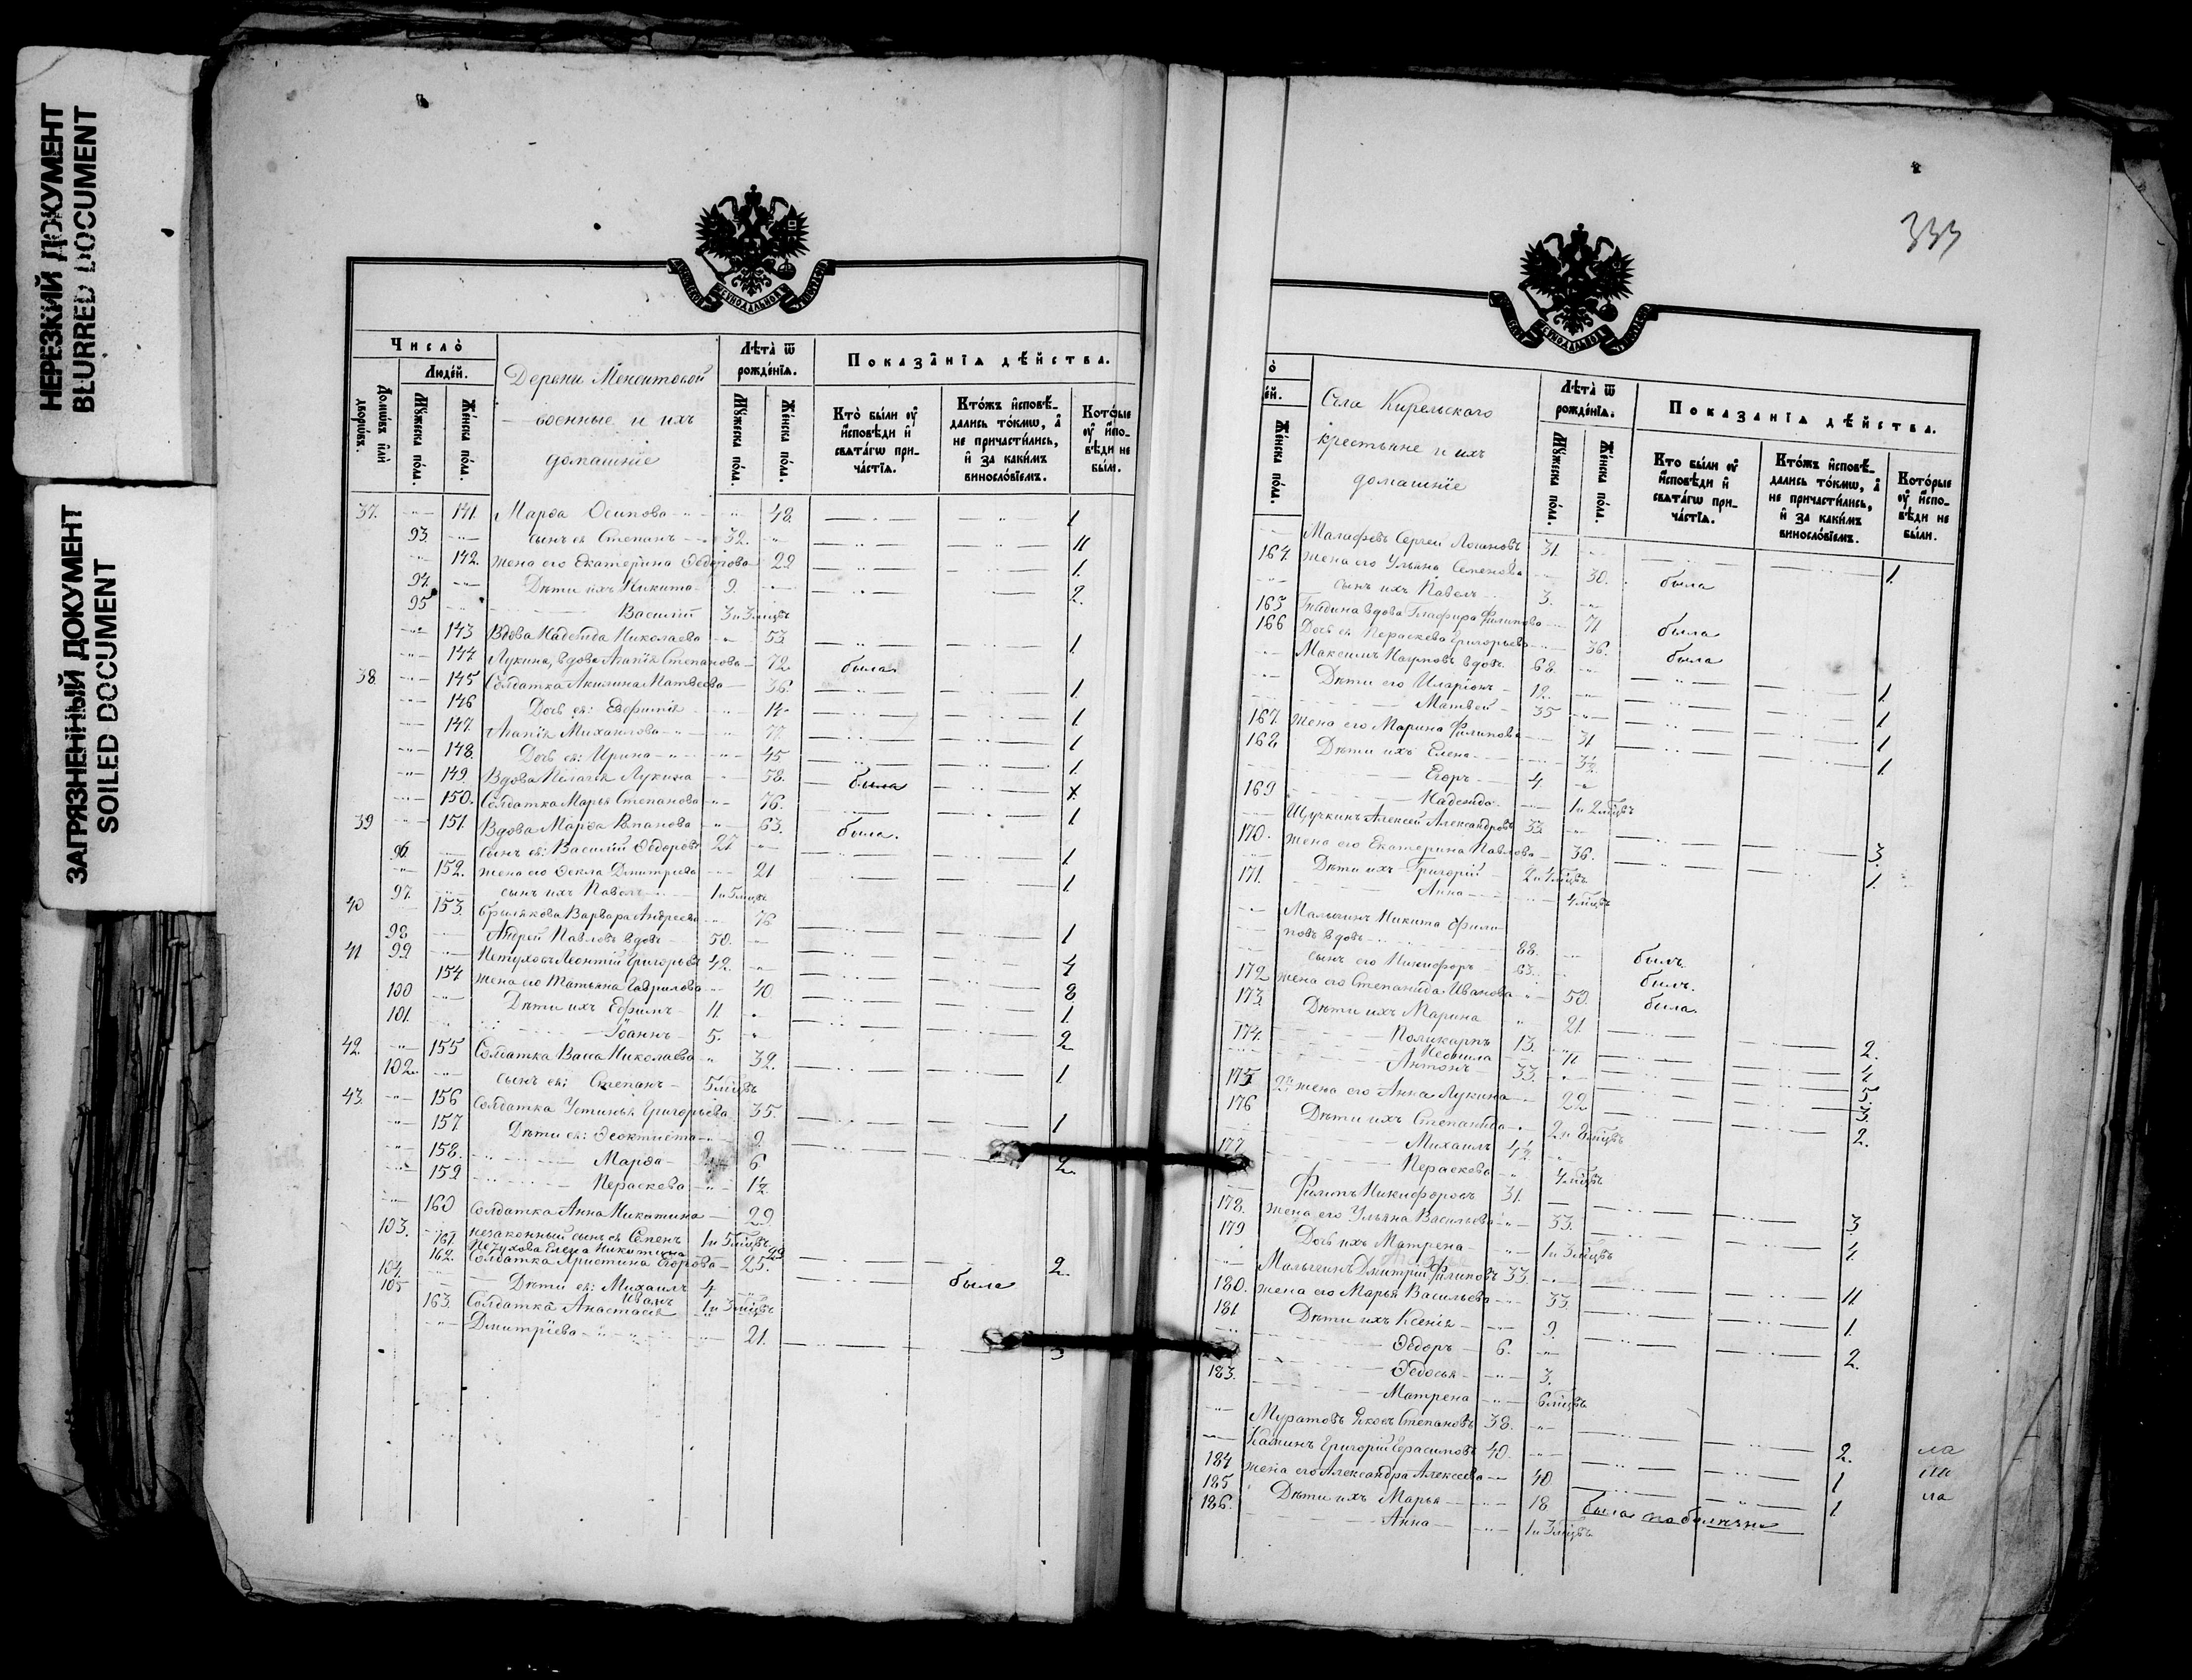 НЕРЕЗКИЙ ДОКУМЕНТ
BLURRED DOCUMENT
ЗАГРЯЗНЕННЫЙ ДОКУМЕНТ
SOILED DOCUMENT
Число̀
Домѡ́въ и҆лѝ дворѡ́въ.
Люде́й.
Мꙋ́жеска по́ла.
Же́нска по́ла.
Деревни
военные и ихъ
домашніе
Лѣ́та ѿ рожде́нїѧ.
Мꙋ́жеска по́ла.
Же́нска по́ла.
Показа̑нїѧ дѣ́йства.
Кто̀ бы́ли ᲂу҆ и҆сповѣ́ди и҆ свѧта́гѡ прича́стїѧ.
Кто́жъ и҆сповѣ́дались то́кмѡ, а҆ не причасти́лись, и҆ за каки́мъ винослові́емъ.
Кото́рые ᲂу҆ и҆сповѣ́ди не бы́ли.
37. 141. Марѳа Осипова 48. 1
93 сынъ ея Степанъ 32. 11
142. жена его Екатерина Ѳедорова 29 1.
94. Дѣти ихъ Никита 9. 2.
95 Василій 3 и 3 мѣцъ
143 Вдова Надежда Николаева 53 1.
144 Лукина, вдова Агапія Степанова 72. была
38. 145 Солдатка Акилина Матвеева 36. 1
146 Дочь ея: Евфимія 14 1
147. Агапія Михаилова 1
148. Дочь ея: Ирина 45 1.
149. Вдова Пелагія Лукина 58. была
150. Солдатка Марья Степанова 76. 1
39 151. Вдова Марѳа 63. была.
96. сынъ ея: Василій Ѳедоровъ 27 1
152. жена его Ѳекла Дмитріева 21 1
97. сынъ ихъ Павелъ 1 и 5 мѣцъ
40 153. Варвара Андреева 76 1
98 Андрей Павловъ вдовъ 50. 4
41 99 Петуховъ Леонтій Григорьевъ 42. 8
154 жена его Татьяна Гаврилова 40 1.
100 Дѣти ихъ Ефимъ 11 2
101. Іоаннъ 5.
42. 155 Солдатка Васа Николаева 32. 1
102. сынъ ея: Степанъ 5 мѣцъ
43. 156 Солдатка Устинья Григорьева 35. 1
157 Дѣти ея: Ѳеоктиста 9. 2.
158. Марѳа 6
159 Параскева 1½
160 Солдатка Анна Никитина 29
103. незаконный сынъ ея Семенъ 1 и 5 мѣцъ
161 Петухова Елена Никитина 2
162. Солдатка Христина Егорова 25. была
104. Дѣти ея: Михаилъ 4
105 Иванъ 1 и 3 мѣцъ
163. Солдатка Анастасія
Дмитріева 21. 3
333
Села Кирельскаго
крестьяне и ихъ
домашніе
Же́нска по́ла.
Лѣ́та ѿ рожде́нїѧ.
Мꙋ́жеска по́ла.
Же́нска по́ла.
Показа̑нїѧ дѣ́йства.
Кто̀ бы́ли ᲂу҆ и҆сповѣ́ди и҆ свѧта́гѡ прича́стїѧ.
Кто́жъ и҆сповѣ́дались то́кмѡ, а҆ не причасти́лись, и҆ за каки́мъ винослові́емъ.
Кото́рые ᲂу҆ и҆сповѣ́ди не бы́ли.
Сергей Логиновъ 31. 1.
164. жена его Ульяна Семенова 30. была
сынъ их Павелъ 3.
165 вдова Глафира Филипова 71 была
166 Дочь ея Параскева Григорьева 36. была
Максимъ Наумовъ вдовъ 68. 1
Дѣти его Иларіонъ 12. 1
Матвей 35 1
167. жена его Марина Филипова 31 1.
168 Дѣти ихъ Елена
Егоръ 4
169 Надежда 1 и 2 мѣцъ
Щучкинъ Алексей Александровъ 33. 3
170. жена его Екатерина Павлова 36. 1.
Дѣти ихъ Григорій 2 и 4 мѣцъ
171. Анна 4 мѣцъ
Малыгинъ Никита Фили-
повъ вдовъ 88. былъ.
сынъ его Никифоръ 63. былъ.
172 жена его Степанида Иванова 50. была.
173. Дѣти ихъ Марина 21. 2.
Поликарпъ 13. 4
174. Неонила 11 5.
Антонъ 33. 3.
175 2я жена его Анна Лукина 22 2.
176 Дѣти ихъ Степанида 2 и 8 мѣцъ
Михаилъ 4½
177 Параскева 4 мѣцъ
Филипъ Никифоровъ 31. 3
178. жена его Ульяна Васильева 33. 4
179 Дочь ихъ Матрена 1 и 3 мѣцъ
Малыгинъ Дмитрій Филиповъ 33. 11.
180. жена его Марья Васильева 33. 1.
181. Дѣти ихъ Ксенія 9. 2.
Ѳедоръ 6.
Ѳедосья 3.
183. Матрена 6 мѣцъ
Муратовъ Яковъ Степановъ 38. 2.
Григорій Герасимовъ 40. 1
184 жена его Александра Алексеева 40 1
185 Дѣти ихъ Марья 18 была
186. Анна 1 и 3 мѣцъ